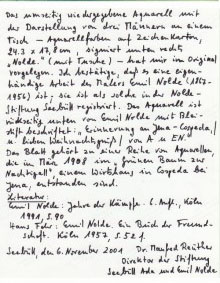 Das umseitig wiedergegebene Aquarell mit
der Darstellung von drei Männern an einem
Tisch – Aquarellfarben auf Zeichenkarton,
24.3 x 17,8 cm, signiert unten rechts
"Nolde." (mit Tusche) – hat mir im Original
vorgelegen. Ich bestätige, daß es eine eigen-
händige Arbeit des Malers Emil Nolde (1867-
1956) ist; sie ist als solche in der Nolde-
Stiftung Seebüll registriert. Das Aquarell ist
rückseitig unten von Emil Nolde mit Blei-
stift beschriftet: "Erinnerung an Jena – Cospeda/
m lieben Weihnachtsgruß/ von A u EN"
Das Blatt gehört zu einer Reihe von Aquarellen,
die im Mai 1908 im "Grünen Baum zur
Nachtigall", einem Wirtshaus in Cospeda bei
Jena, entstanden sind.
Literatur:
Emil Nolde: Jahre der Kämpfe. 6. Aufl., Köln
1991, S. 90
Hans Fehr: Emil Nolde. Ein Buch der Freund-
schaft. Köln 1957, S. 52 f.
Seebüll, den 6. November 2001 Dr. Manfred Reuther
Direktor der Stiftung
Seebüll Ada und Emil Nolde